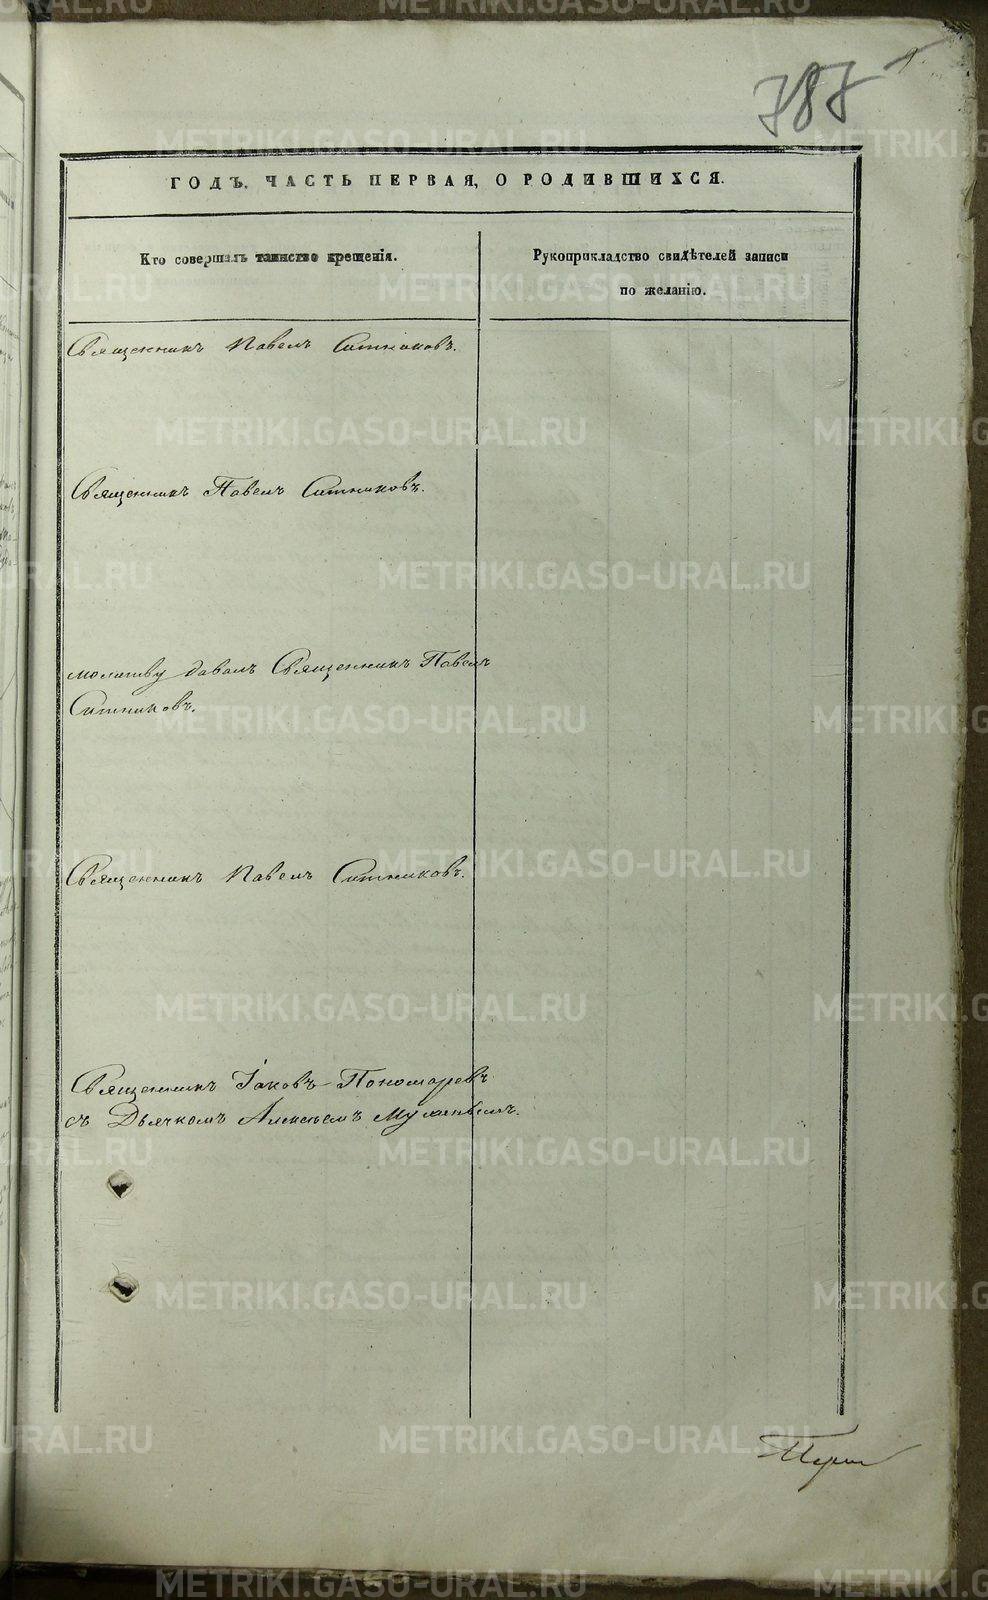 787
ГОДЪ, ЧАСТЬ ПЕРВАЯ, О РОДИВШИХСЯ.
Кто совершалъ таинство крещенія.
Рукоприкладство свидѣтелей записи
по желанію.
Священникъ Павелъ Ситниковъ.
Священникъ Павелъ Ситниковъ.
молитву давалъ Священникъ Павелъ
Ситниковъ.
Священникъ Павелъ Ситниковъ.
Священникъ Іаковъ Пономаревъ
съ Дьячкомъ Алексѣемъ
METRIKI.GASO-URAL.RU